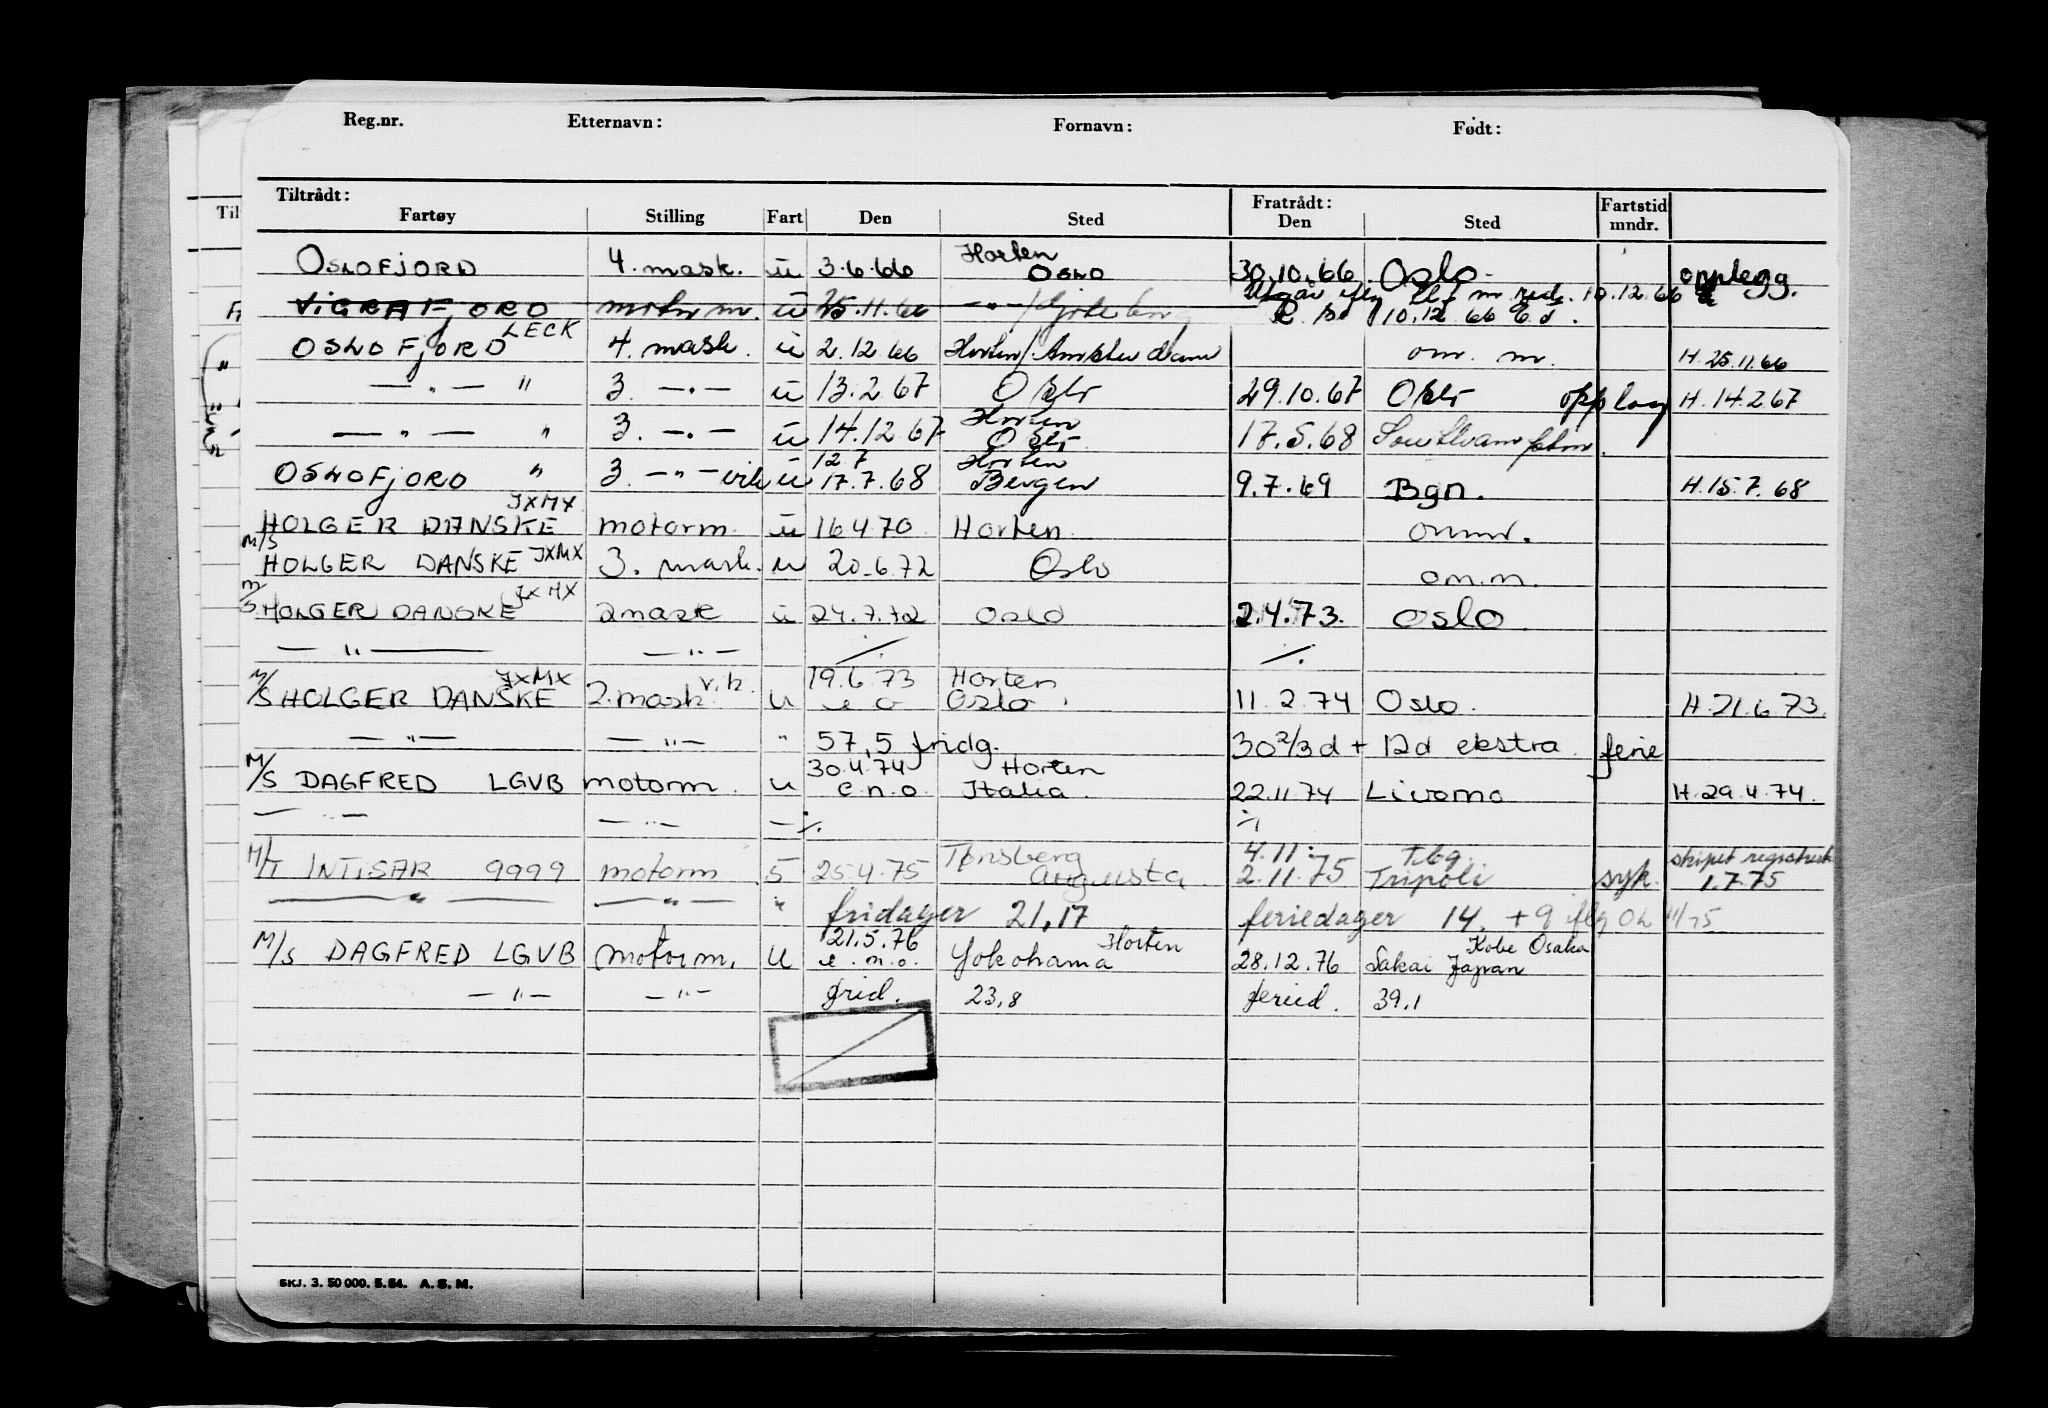 Reg.nr. Etternavn: Fornavn: Født:
Tiltrådt: Fratrådt: Fartstid
Fartøy Stilling Fart Den Sted Den Sted mndr.
Horten
OSLOFJORD 4. mask. u 3.6.66 OSLO 30.10.66 Oslo. opplegg.
10.12.66
VIGRAFJORD motorm. u 25.11.66 —"—/ 10.12.66
LECK
OSLOFJORD 4. mask. u 2.12.66 Horten/Amsterdam om. m. H. 25.11.66
—"— " 3. —"— u 13.2.67 Oslo 29.10.67 Oslo opplag H. 14.2.67
Horten
—"— " 3. —"— u 14.12.67 Oslo 17.5.68 Southampton.
12.7 Horten
OSLOFJORD " 3. —"— vik u 17.7.68 Bergen 9.7.69 Bgn. H. 15.7.68
JXMX
HOLGER DANSKE motorm. u 16.4.70 Horten
M/S HOLGER DANSKE JXMX 3. mask. u 20.6.72 Oslo om.m.
JXMX
M/S HOLGER DANSKE 2 mask u 24.7.72 Oslo 2.4.73. Oslo
—"— —"— ./. ./.
JXMX v.h. 19.6.73 Horten
M/S HOLGER DANSKE 2. mask. u Oslo. 11.2.74 Oslo. H. 21.6.73.
—"— —"— " 57,5 fridg. 30 2/3 d + 12d ekstra ferie
30.4.74 Horten
M/S DAGFRED LGVB motorm. u e.n.o. Italia. 22.11.74 Livorno H. 29.4.74.
—"— —"— — ./. ./.
Tønsberg 4.11. Tbg. skipet registrert
M/T INTISAR 9999 motorm 5 25.4.75 Augusta. 2.11.75 Tripoli syk. 1.7.75
—"— —"— " fridager 21,17 feriedager 14. + 9 iflg 11/75
21.5.76 Horten Kobe Osaka
M/S DAGFRED LGVB motorm. u e.n.o. Yokohama 28.12.76 Sakai Japan
—"— —"— frid. 23,8 feried. 39,1
SKJ. 3. 50 000. 5.64. A. S. M.